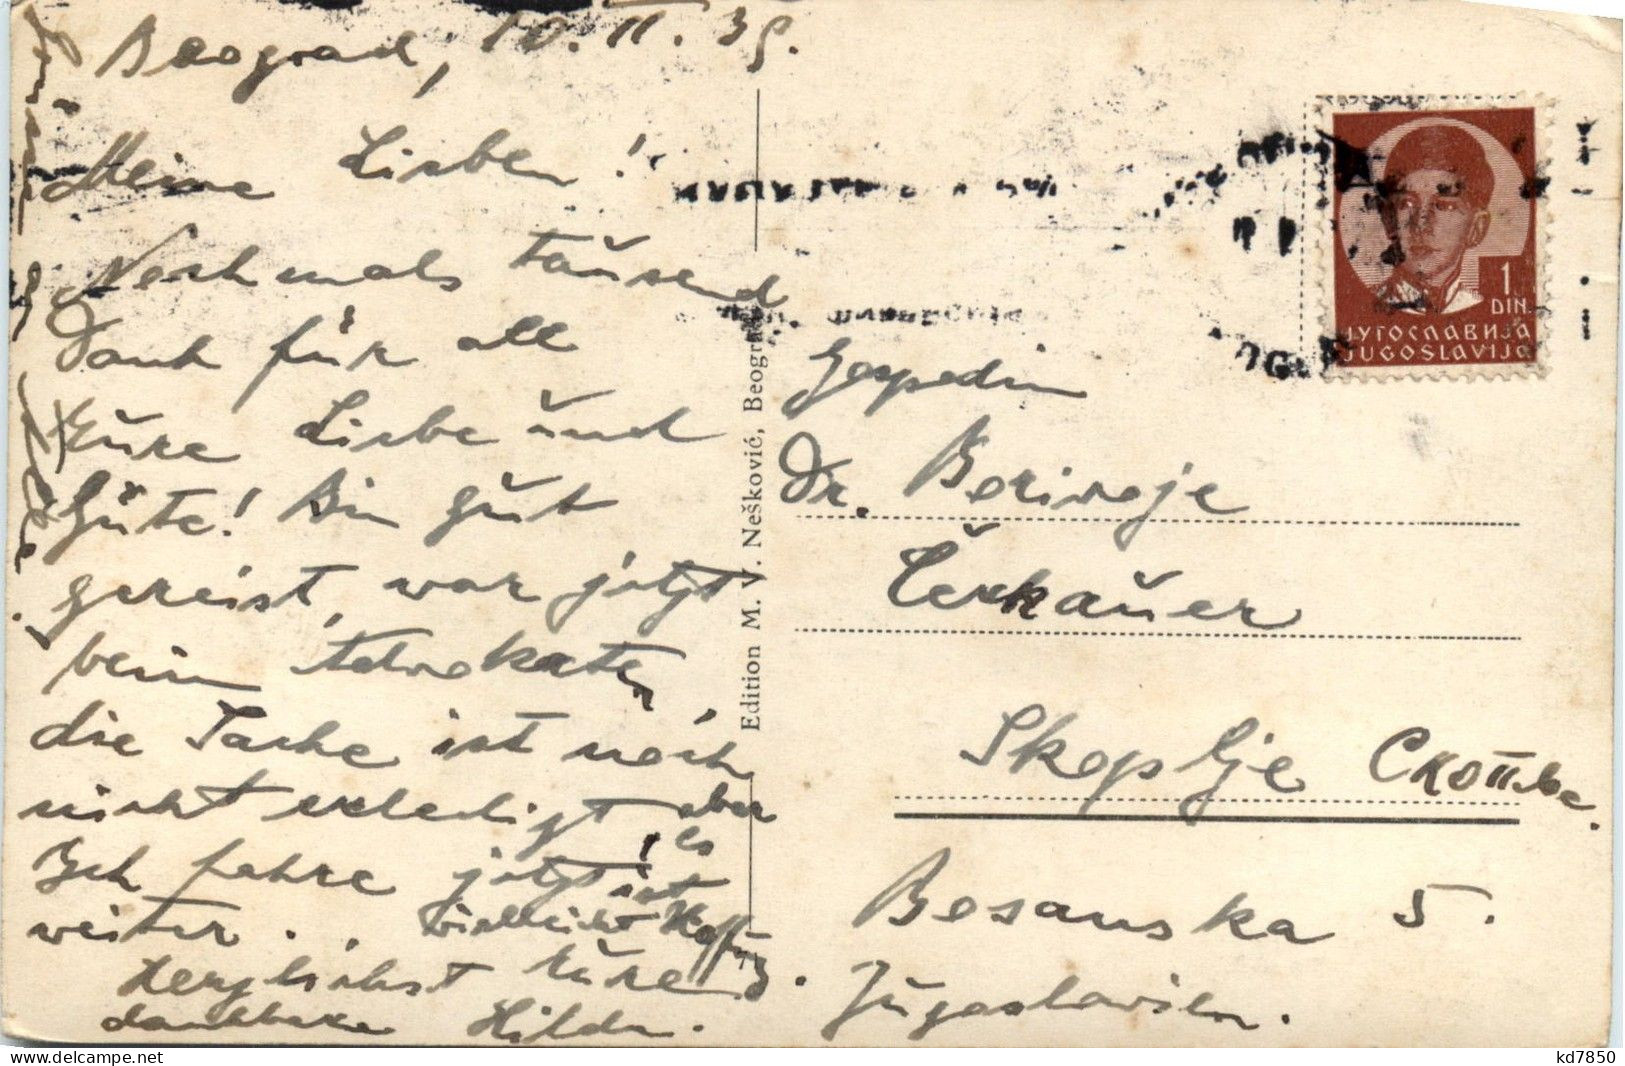 Beograd, 10. II. 39.
Meine Lieben!
Nochmals tausend
Dank für all
Eure Liebe und
Güte! Bin gut
gereist, war jetzt
beim Advokaten,
die Sache ist noch
nicht erledigt aber
es
Ich fahre jetzt! ist
weiter. vielleicht Hoffng.
Herzlichst Eure
dankbare Hilda.
Edition M. V. Nešković, Beograd
71
1
DIN.
ЈУГОСЛАВИЈА
JUGOSLAVIJA
Gospodin
Dr. Borivoje
Čerkauer
Skoplje Скопље.
Bosanska 5.
Jugoslavien.
kd7850